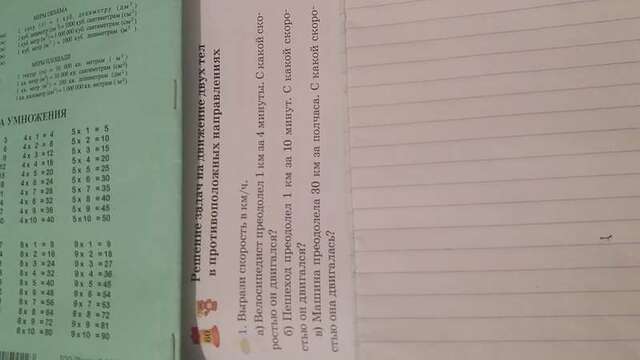 МЕРЫ ОБЪЕМА
МЕРЫ ПЛОЩАДИ
УМНОЖЕНИЯ
4 x 1 = 4
4 x 2 = 8
4 x 3 = 12
4 x 4 = 16
4 x 5 = 20
4 x 6 = 24
4 x 7 = 28
4 x 8 = 32
4 x 9 = 36
4 x 10 = 40
5 x 1 = 5
5 x 2 = 10
5 x 3 = 15
5 x 4 = 20
5 x 5 = 25
5 x 6 = 30
5 x 7 = 35
5 x 8 = 40
5 x 9 = 45
5 x 10 = 50
8 x 1 = 8
8 x 2 = 16
8 x 3 = 24
8 x 4 = 32
8 x 5 = 40
8 x 6 = 48
8 x 7 = 56
8 x 8 = 64
8 x 9 = 72
8 x 10 = 80
9 x 1 = 9
9 x 2 = 18
9 x 3 = 27
9 x 4 = 36
9 x 5 = 45
9 x 6 = 54
9 x 7 = 63
9 x 8 = 72
9 x 9 = 81
9 x 10 = 90
60
Решение задач на движение двух тел
в противоположных направлениях
1. Вырази скорость в км/ч.
а) Велосипедист преодолел 1 км за 4 минуты. С какой ско-
ростью он двигался?
б) Пешеход преодолел 1 км за 10 минут. С какой скоро-
стью он двигался?
в) Машина преодолела 30 км за полчаса. С какой скоро-
стью она двигалась?